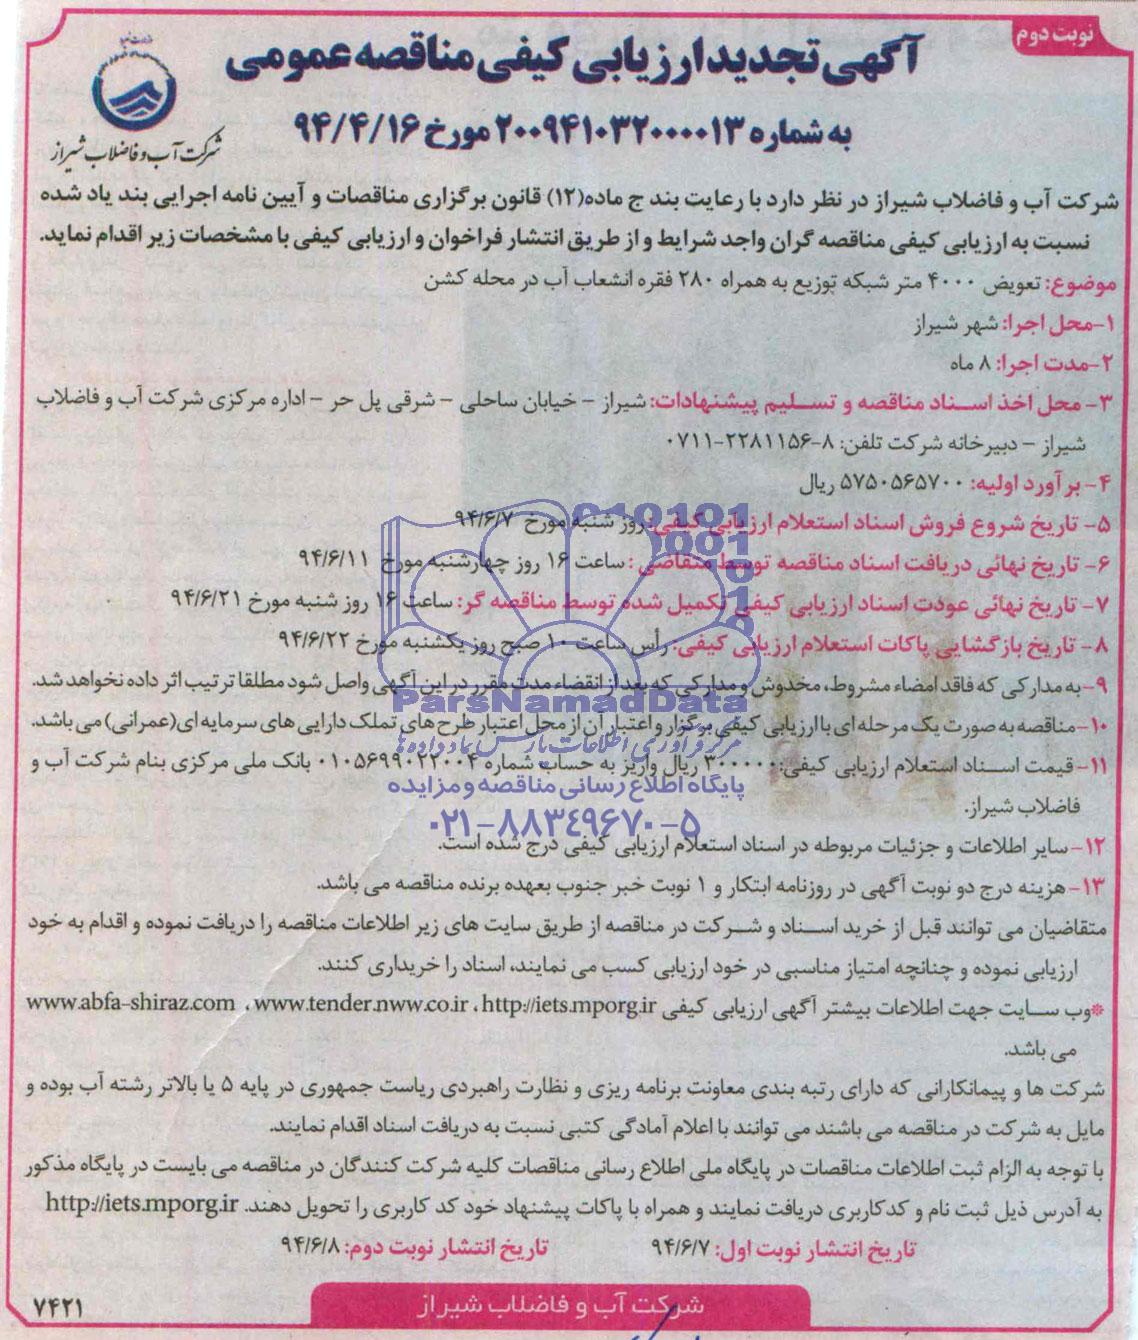 نوبت دوم
آگهی تجدید ارزیابی کیفی مناقصه عمومی
به شماره ۲۰۰۹۴۱۰۳۲۰۰۰۰۱۳ مورخ ۹۴/۴/۱۶
شرکت آب و فاضلاب شیراز
شرکت آب و فاضلاب شیراز در نظر دارد با رعایت بند ج ماده(۱۲) قانون برگزاری مناقصات و آیین نامه اجرایی بند یاد شده
نسبت به ارزیابی کیفی مناقصه گران واجد شرایط و از طریق انتشار فراخوان و ارزیابی کیفی با مشخصات زیر اقدام نماید.
موضوع: تعویض ۴۰۰۰ متر شبکه توزیع به همراه ۲۸۰ فقره انشعاب آب در محله کشن
۱-محل اجرا: شهر شیراز
۲-مدت اجرا: ۸ ماه
۳- محل اخذ اسناد مناقصه و تسلیم پیشنهادات: شیراز - خیابان ساحلی - شرقی پل حر - اداره مرکزی شرکت آب و فاضلاب
شیراز - دبیرخانه شرکت تلفن: ۸-۲۲۸۱۱۵۶-۰۷۱۱
۴- برآورد اولیه: ۵۷۵۰۵۶۵۷۰۰ ریال
۵- تاریخ شروع فروش اسناد استعلام ارزیابی کیفی: روز شنبه مورخ ۹۴/۶/۷
۶- تاریخ نهائی دریافت اسناد مناقصه توسط متقاضی: ساعت ۱۶ روز چهارشنبه مورخ ۹۴/۶/۱۱
۷- تاریخ نهائی عودت اسناد ارزیابی کیفی تکمیل شده توسط مناقصه گر: ساعت ۱۶ روز شنبه مورخ ۹۴/۶/۲۱
۸- تاریخ بازگشایی پاکات استعلام ارزیابی کیفی: رأس ساعت ۱۰ صبح روز یکشنبه مورخ ۹۴/۶/۲۲
۹-به مدارکی که فاقد امضاء مشروط، مخدوش و مدارکی که بعد از انقضاء مدت مقرر در این آگهی واصل شود مطلقا ترتیب اثر داده نخواهد شد.
۱۰-مناقصه به صورت یک مرحله ای با ارزیابی کیفی برگزار و اعتبار آن از محل اعتبار طرح های تملک دارایی های سرمایه ای(عمرانی) می باشد.
۱۱- قیمت اسناد استعلام ارزیابی کیفی: ۳۰۰۰۰۰ ریال واریز به حساب شماره ۰۱۰۵۶۹۹۰۲۲۰۰۴ بانک ملی مرکزی بنام شرکت آب و
فاضلاب شیراز.
۱۲-سایر اطلاعات و جزئیات مربوطه در اسناد استعلام ارزیابی کیفی درج شده است.
۱۳-هزینه درج دو نوبت آگهی در روزنامه ابتکار و ۱ نوبت خبر جنوب بعهده برنده مناقصه می باشد.
متقاضیان می توانند قبل از خرید اسناد و شرکت در مناقصه از طریق سایت های زیر اطلاعات مناقصه را دریافت نموده و اقدام به خود
ارزیابی نموده و چنانچه امتیاز مناسبی در خود ارزیابی کسب می نمایند، اسناد را خریداری کنند.
*وب سایت جهت اطلاعات بیشتر آگهی ارزیابی کیفی www.abfa-shiraz.com ، www.tender.nww.co.ir ، http://iets.mporg.ir
می باشد.
شرکت ها و پیمانکارانی که دارای رتبه بندی معاونت برنامه ریزی و نظارت راهبردی ریاست جمهوری در پایه ۵ یا بالاتر رشته آب بوده و
مایل به شرکت در مناقصه می باشند می توانند با اعلام آمادگی کتبی نسبت به دریافت اسناد اقدام نمایند.
با توجه به الزام ثبت اطلاعات مناقصات در پایگاه ملی اطلاع رسانی مناقصات کلیه شرکت کنندگان در مناقصه می بایست در پایگاه مذکور
به آدرس ذیل ثبت نام و کدکاربری دریافت نمایند و همراه با پاکات پیشنهاد خود کد کاربری را تحویل دهند. http://iets.mporg.ir
تاریخ انتشار نوبت اول: ۹۴/۶/۷ تاریخ انتشار نوبت دوم: ۹۴/۶/۸
شرکت آب و فاضلاب شیراز
۷۴۲۱
ParsNamadData
مرکز فرآوری اطلاعات پارس نماد داده ها
پایگاه اطلاع رسانی مناقصه و مزایده
۰۲۱-۸۸۳۴۹۶۷۰-۵